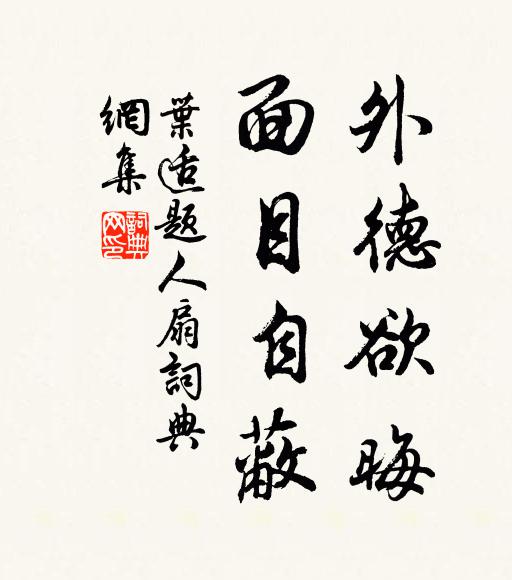 外德欲晦
面目自蔽
葉适題人扇詞典
網集
詞典網印